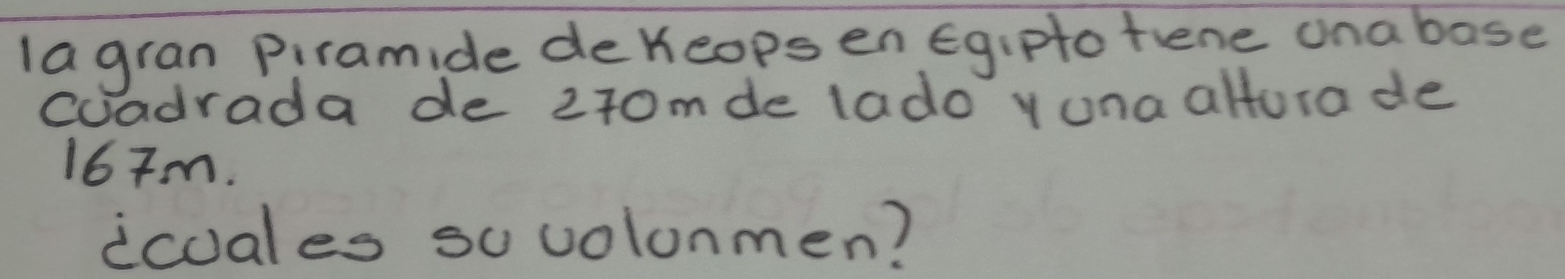 la gran Piramide de Keops en Egipto tiene una base
cuadrada de 270m de lado y una altura de
167m.
¿cual es su volunmen?